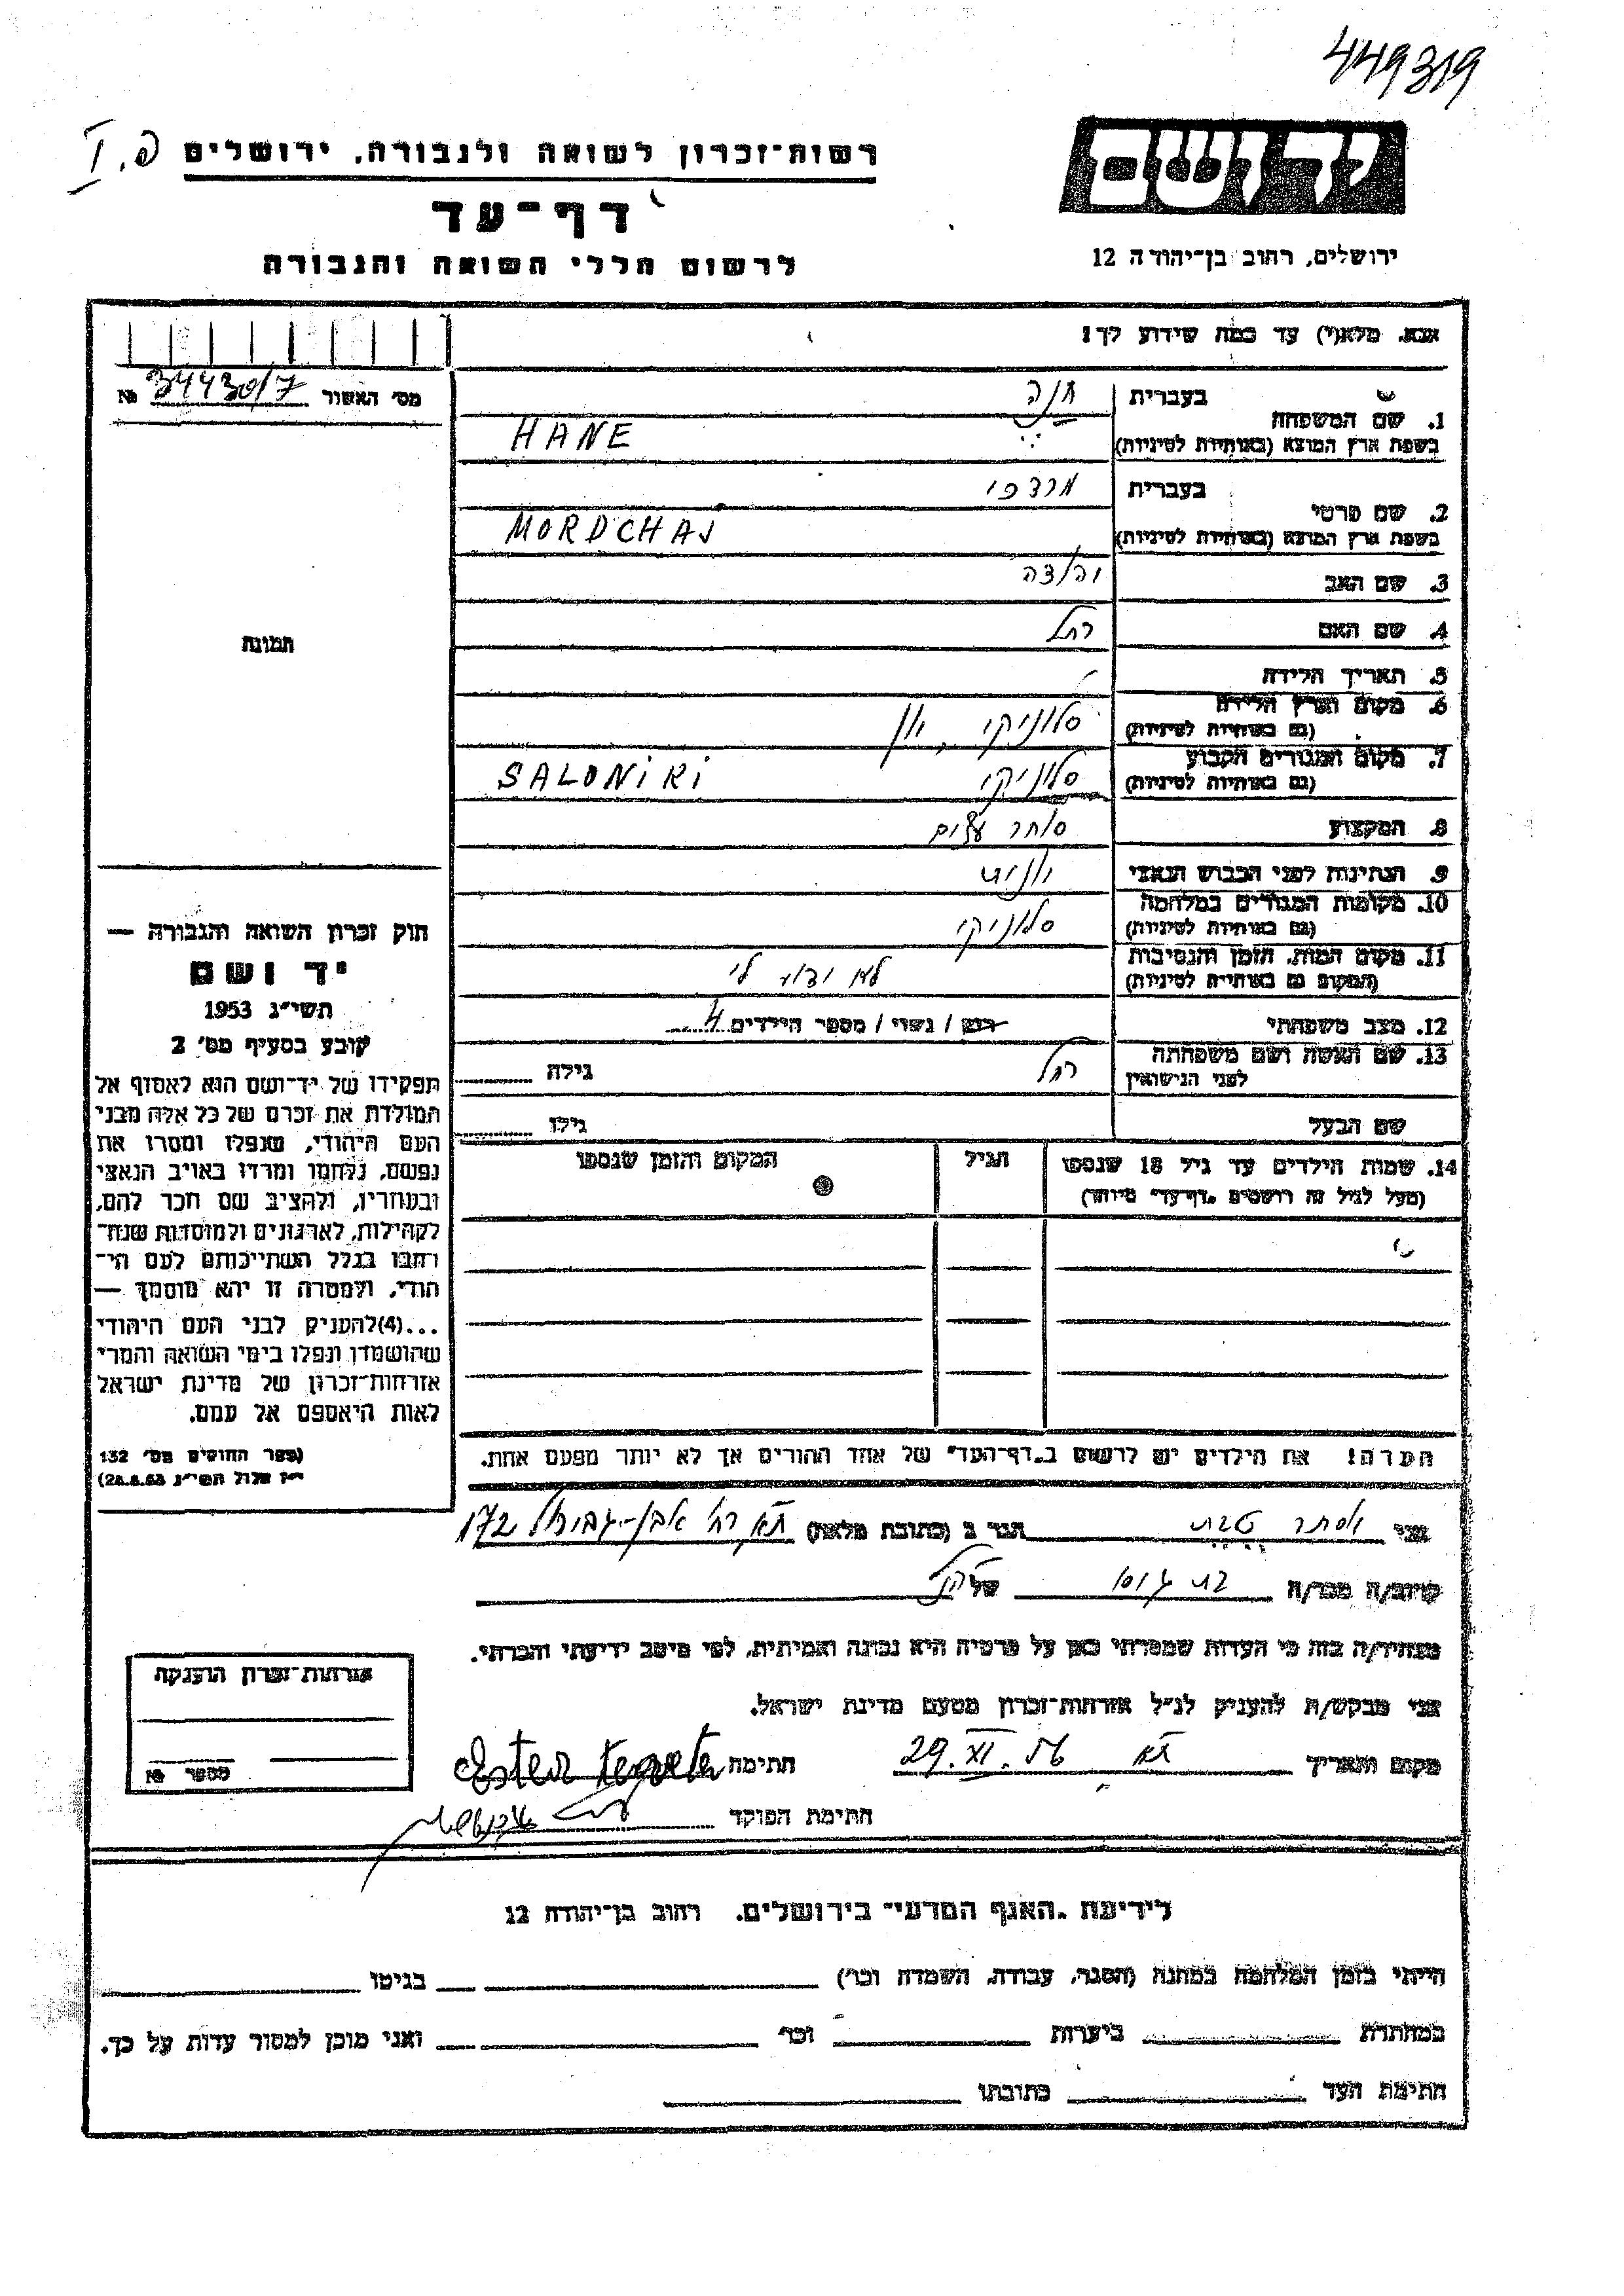 449319
רשות־זכרון לשואה ולגבורה, ירושלים
דף־עד
לרשום חללי השואה והגבורה
יד ושם
ירושלים, רחוב בן־יהודה 12
אנא, מלא(י) עד כמה שידוע לך!
מס׳ האשור 34430/7 №
תמונה
1. שם המשפחה
בעברית חנה
בשפת ארץ המוצא (באותיות לטיניות) HANE
2. שם פרטי
בעברית מרדכי
בשפת ארץ המוצא (באותיות לטיניות) MORDCHAJ
3. שם האב
4. שם האם רחל
5. תאריך הלידה
6. מקום וארץ הלידה סלוניקי, יוון
(גם באותיות לטיניות)
7. מקום המגורים הקבוע סלוניקי SALONIKI
(גם באותיות לטיניות)
8. המקצוע סוחר עצים
9. הנתינות לפני הכבוש הנאצי יוונית
10. מקומות המגורים במלחמה סלוניקי
(גם באותיות לטיניות)
11. מקום המות, הזמן והנסיבות לא ידוע לי
(המקום גם באותיות לטיניות)
12. מצב משפחתי רוק / נשוי / מספר הילדים 4
13. שם האשה ושם משפחתה רחל גילה
לפני הנישואין
שם הבעל גילו
14. שמות הילדים עד גיל 18 שנספו הגיל המקום והזמן שנספו
(מעל לגיל זה רושמים „דף־עד״ מיוחד)
הערה! את הילדים יש לרשום ב„דף־העד״ של אחד ההורים אך לא יותר מפעם אחת.
חוק זכרון השואה והגבורה —
יד ושם
תשי״ג 1953
קובע בסעיף מס׳ 2
תפקידו של יד־ושם הוא לאסוף אל
המולדת את זכרם של כל אלה מבני
העם היהודי, שנפלו ומסרו את
נפשם, נלחמו ומרדו באויב הנאצי
ובעוזריו, ולהציב שם וזכר להם,
לקהילות, לארגונים ולמוסדות שנח־
רבו בגלל השתייכותם לעם הי־
הודי, ולמטרה זו יהא מוסמך —
...(4)להעניק לבני העם היהודי
שהושמדו ונפלו בימי השואה והמרי
אזרחות־זכרון של מדינת ישראל
לאות היאספם אל עמם.
(ספר החוקים מס׳ 132
י״ז אלול תשי״ג 28.8.53)
אני אסתר טבת הגר ב (כתובת מלאה) ת״א רח׳ אבן־גבירול 172
קרוב/ה מכר/ה בת גיסו של הנ״ל
מצהיר/ה בזה כי העדות שמסרתי כאן על פרטיה היא נכונה ואמיתית, לפי מיטב ידיעתי והכרתי.
אני מבקש/ת להעניק לנ״ל אזרחות־זכרון מטעם מדינת ישראל.
מקום ותאריך ת״א 29.XI.56 חתימה Ester
חתימת הפוקד
אזרחות־זכרון הוענקה
מספר №
לידיעת „האגף המדעי״ בירושלים, רחוב בן־יהודה 12
הייתי בזמן המלחמה במחנה (הסגר, עבודה, השמדה וכו׳) בגיטו
במחתרת ביערות וכו׳ ואני מוכן למסור עדות על כך.
חתימת העד כתובתו